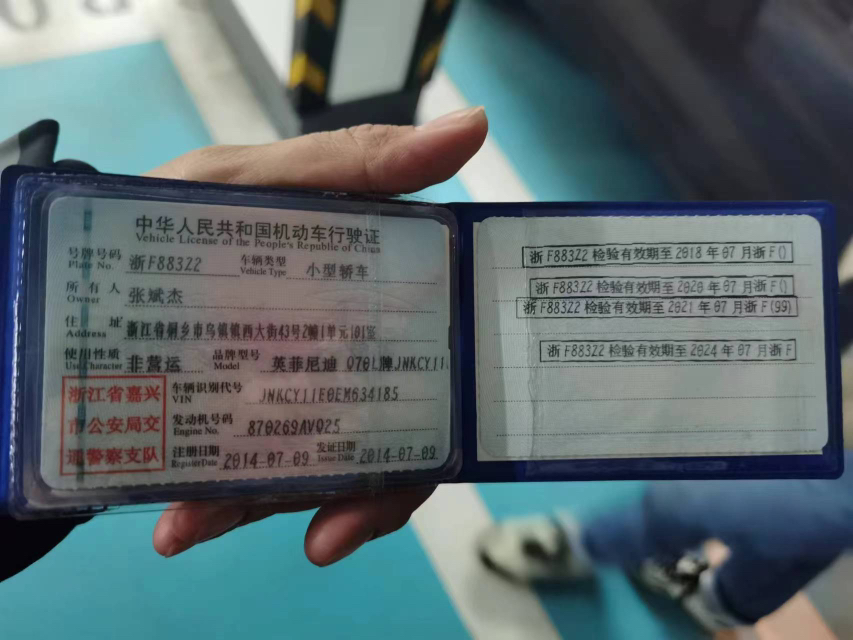 中华人民共和国机动车行驶证
Vehicle License of the People's Republic of China
号牌号码 浙F883Z2 车辆类型 小型轿车
Plate No. Vehicle Type
所有人 张斌杰
Owner
住址 浙江省桐乡市乌镇镇西大街43号2幢1单元101室
Address
使用性质 非营运 品牌型号 英菲尼迪 Q70L牌JNKCY11
Use Character Model
浙江省嘉兴
市公安局交
通警察支队
车辆识别代号 JNKCY11E0EM634185
VIN
发动机号码 870269AVQ25
Engine No.
注册日期 2014-07-09 发证日期 2014-07-09
Register Date Issue Date
浙F883Z2 检验有效期至 2018 年 07 月浙F()
浙F883Z2 检验有效期至 2020 年 07 月浙F()
浙F883Z2 检验有效期至 2021 年 07 月浙F(99)
浙F883Z2 检验有效期至 2024 年 07 月浙F